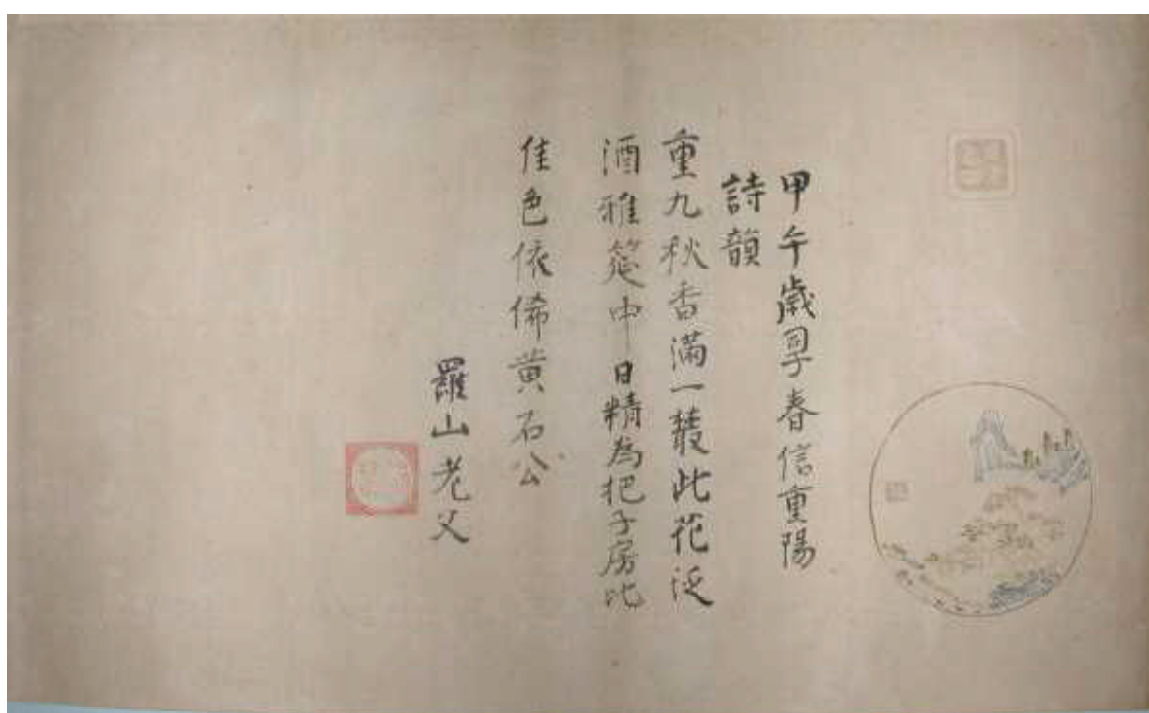 甲午歳春信重陽
詩韻
重九秋香滿一叢此花泛
酒雅筵中日精為把子房比
佳色依俙黄石公
羅山老父